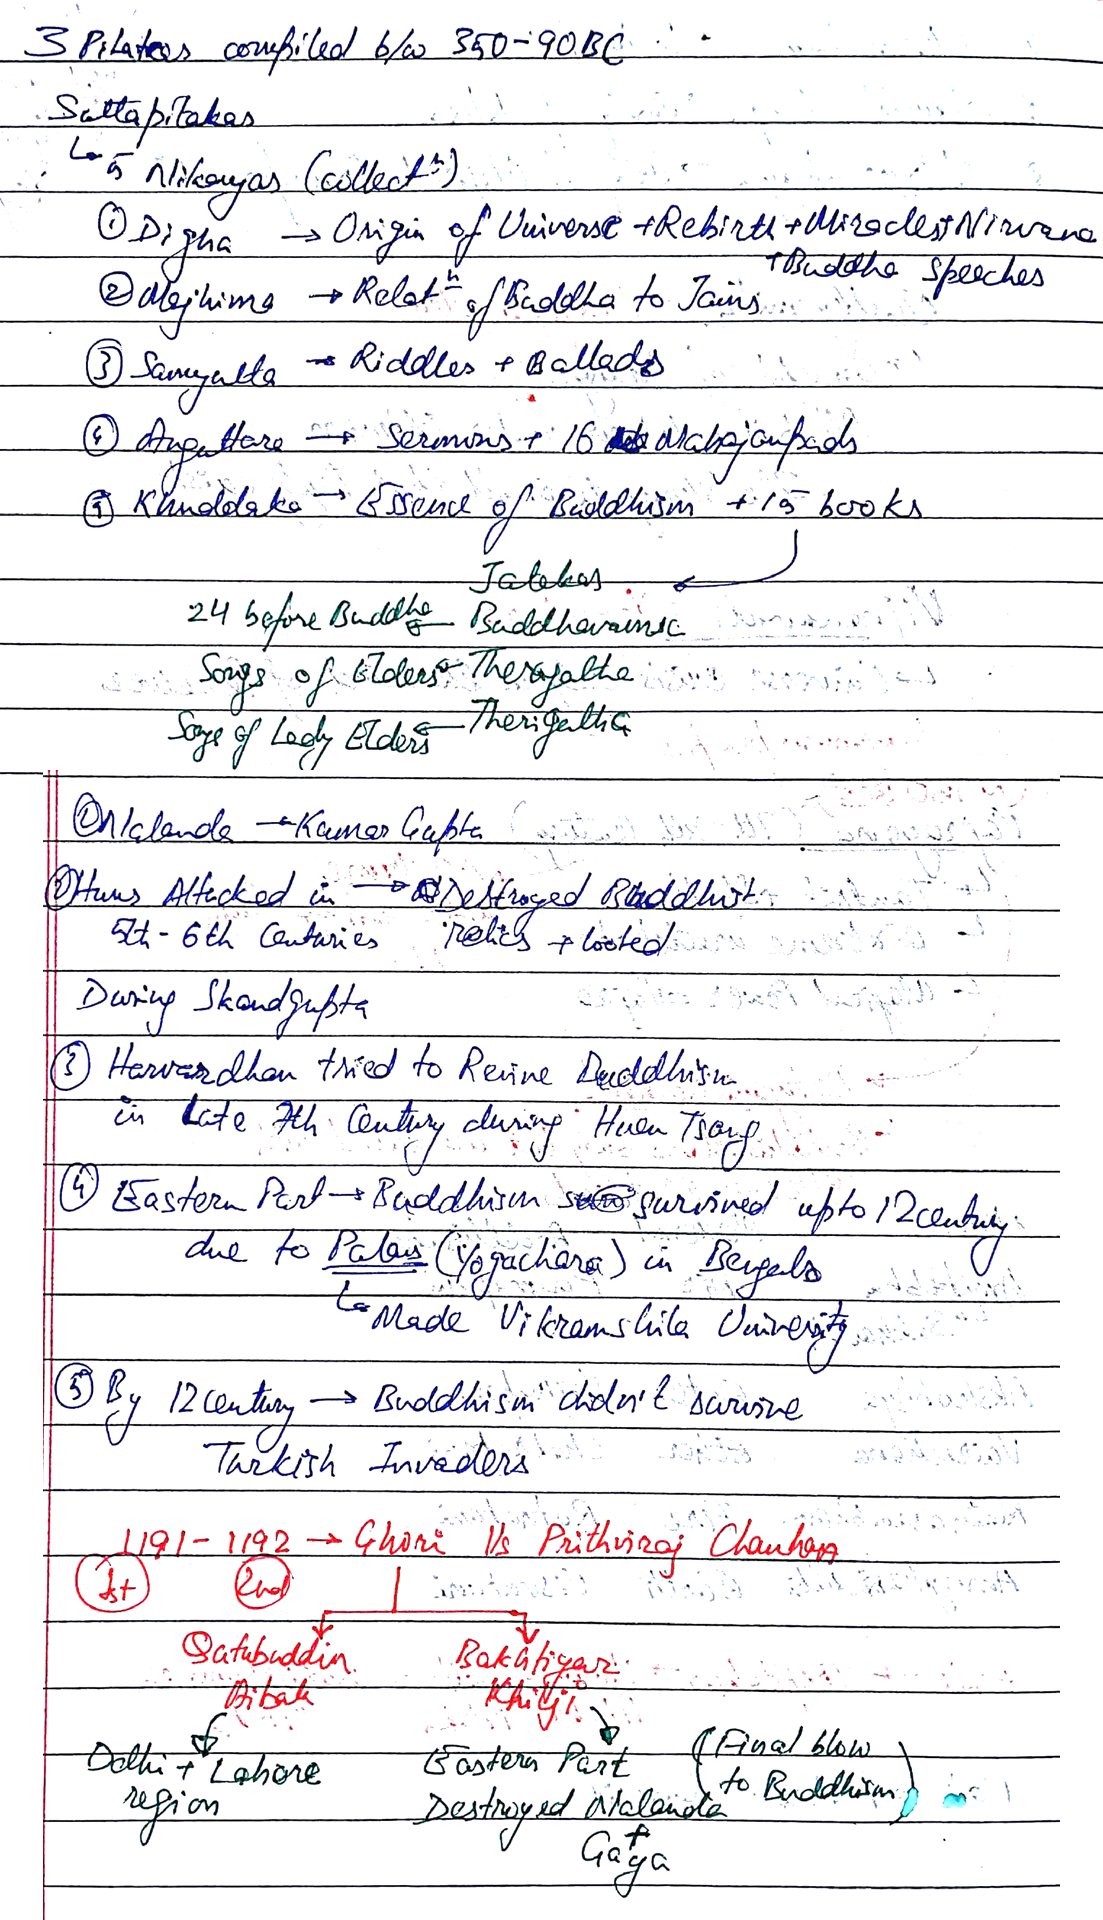 3 Pitakas compiled b/w 350-90BC
Suttapitakas
↳ 5 Nikayas (collectn)
① Digha → Origin of Universe + Rebirth + Miracles + Nirvana
+ Buddha Speeches
② Majhima → Relatn of Buddha to Jains
③ Samyutta → Riddles + Ballads
④ Anguttara → Sermons + 16 Mahajanpads
⑤ Khuddaka → Essence of Buddhism + 15 books
Jatakas
24 before Buddha ← Buddhavamsa
Songs of Elders ← Theragatha
Songs of Lady Elders ← Therigatha
① Nalanda → Kumar Gupta
② Huns Attacked in → Destroyed Buddhist
5th-6th Centuries relics + looted
During Skandgupta
③ Harvardhan tried to Revive Buddhism
in Late 7th Century during Huen Tsang
④ Eastern Part → Buddhism survived upto 12 century
due to Palas (Yogachara) in Bengals
↳ Made Vikramshila University
⑤ By 12 century → Buddhism didn't survive
Turkish Invaders
1191-1192 → Ghori Vs Prithviraj Chauhan
1st 2nd
Qutubuddin Bakhtiyar
Aibak Khilji
Delhi + Lahore Eastern Part (Final blow
region Destroyed Nalanda to Buddhism)
+
Gaya